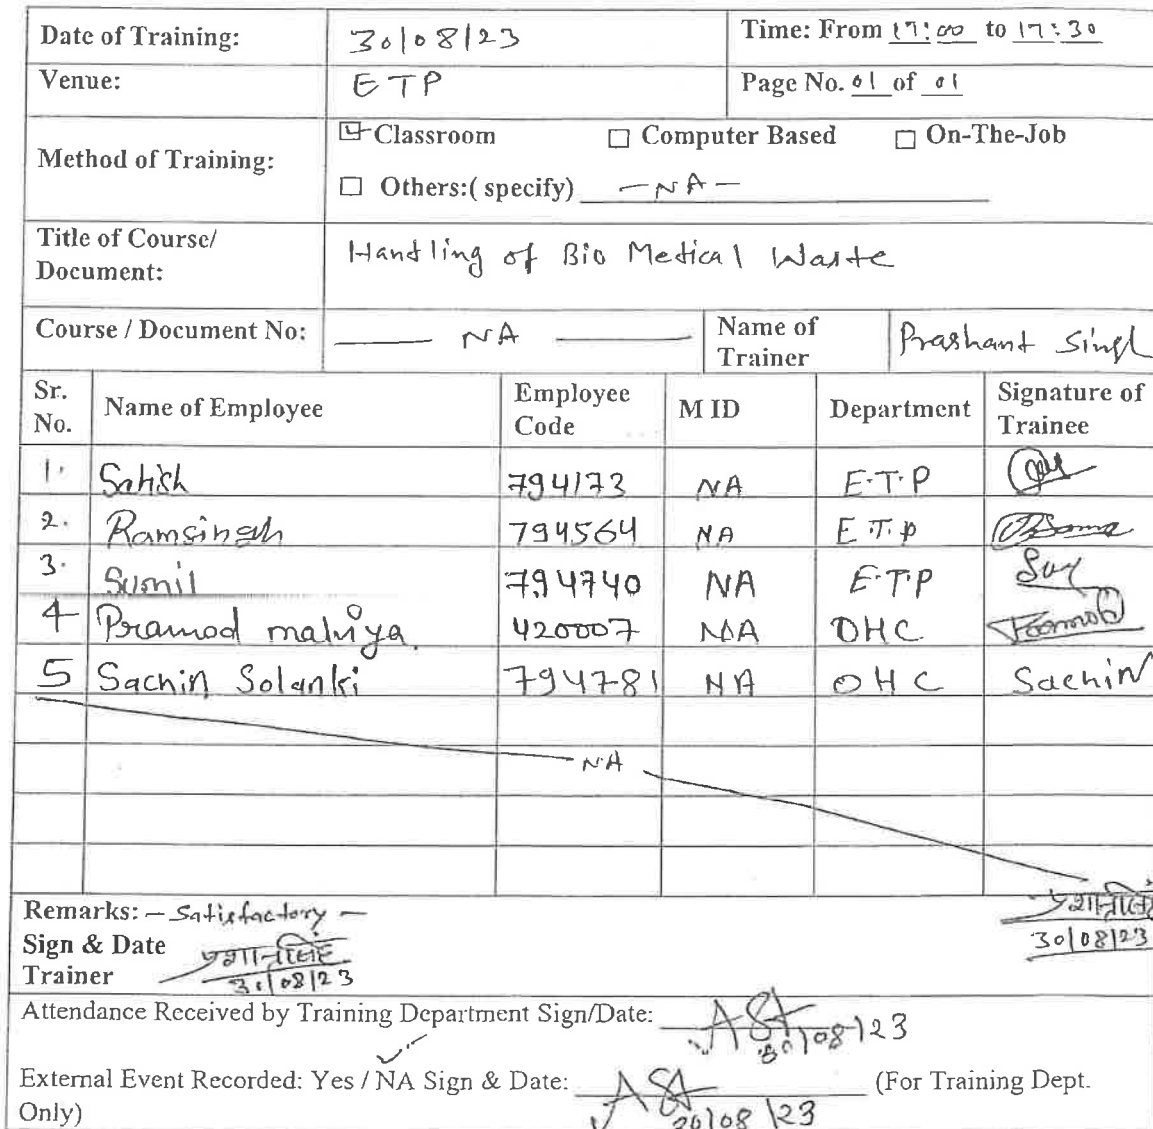 Date of Training: 30/08/23 Time: From 17:00 to 17:30
Venue: ETP Page No. 01 of 01
Method of Training: Classroom Computer Based On-The-Job
Others:( specify) -NA-
Title of Course/
Document: Handling of Bio Medical Waste
Course / Document No: NA Name of
Trainer Prashant Singh
Sr.
No. Name of Employee Employee
Code M ID Department Signature of
Trainee
1. Satish 794173 NA E.T.P
2. Ramsingh 794564 NA E.T.P
3. Sunil 794740 NA E.T.P
4 Pramod malviya 420007 NA OHC Pramod
5 Sachin Solanki 794781 NA OHC Sachin
NA
Remarks: - Satisfactory -
30/08/23
Sign & Date
Trainer 30/08/23
Attendance Received by Training Department Sign/Date: 30/08/23
External Event Recorded: Yes / NA Sign & Date: 30/08/23 (For Training Dept.
Only)